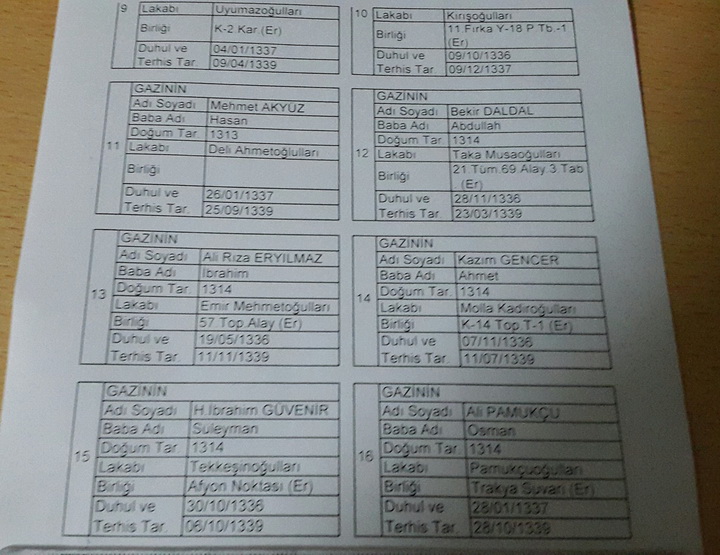 9
Lakabı Uyumazoğulları
Birliği K-2.Kar.(Er)
Duhul ve 04/01/1337
Terhis Tar. 09/04/1339
10
Lakabı Kirişoğulları
Birliği 11 Fırka Y-18 P Tb.-1 (Er)
Duhul ve 09/10/1336
Terhis Tar. 09/12/1337
11
GAZİNİN
Adı Soyadı Mehmet AKYÜZ
Baba Adı Hasan
Doğum Tar. 1313
Lakabı Deli Ahmetoğlulları
Birliği
Duhul ve 26/01/1337
Terhis Tar. 25/09/1339
12
GAZİNİN
Adı Soyadı Bekir DALDAL
Baba Adı Abdullah
Doğum Tar. 1314
Lakabı Taka Musaoğulları
Birliği 21.Tüm.69.Alay.3.Tab
.(Er)
Duhul ve 28/11/1336
Terhis Tar. 23/03/1339
13
GAZİNİN
Adı Soyadı Ali Rıza ERYILMAZ
Baba Adı İbrahim
Doğum Tar. 1314
Lakabı Emir Mehmetoğulları
Birliği 57.Top.Alay (Er)
Duhul ve 19/05/1336
Terhis Tar. 11/11/1339
14
GAZİNİN
Adı Soyadı Kazım GENCER
Baba Adı Ahmet
Doğum Tar. 1314
Lakabı Molla Kadiroğulları
Birliği K-14 Top.T-1 (Er)
Duhul ve 07/11/1336
Terhis Tar. 11/07/1339
15
GAZİNİN
Adı Soyadı H.İbrahim GÜVENİR
Baba Adı Süleyman
Doğum Tar. 1314
Lakabı Tekkeşinoğulları
Birliği Afyon Noktası (Er)
Duhul ve 30/10/1336
Terhis Tar. 06/10/1339
16
GAZİNİN
Adı Soyadı Ali PAMUKÇU
Baba Adı Osman
Doğum Tar. 1314
Lakabı Pamukçuoğulları
Birliği Trakya Süvari (Er)
Duhul ve 28/01/1337
Terhis Tar. 28/10/1339